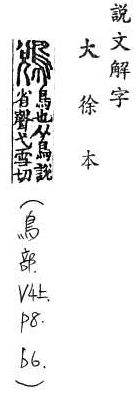 說文解字
大徐本
鳥也从鳥說
省聲弋雪切
(鳥部. V4上. p8. b6.)